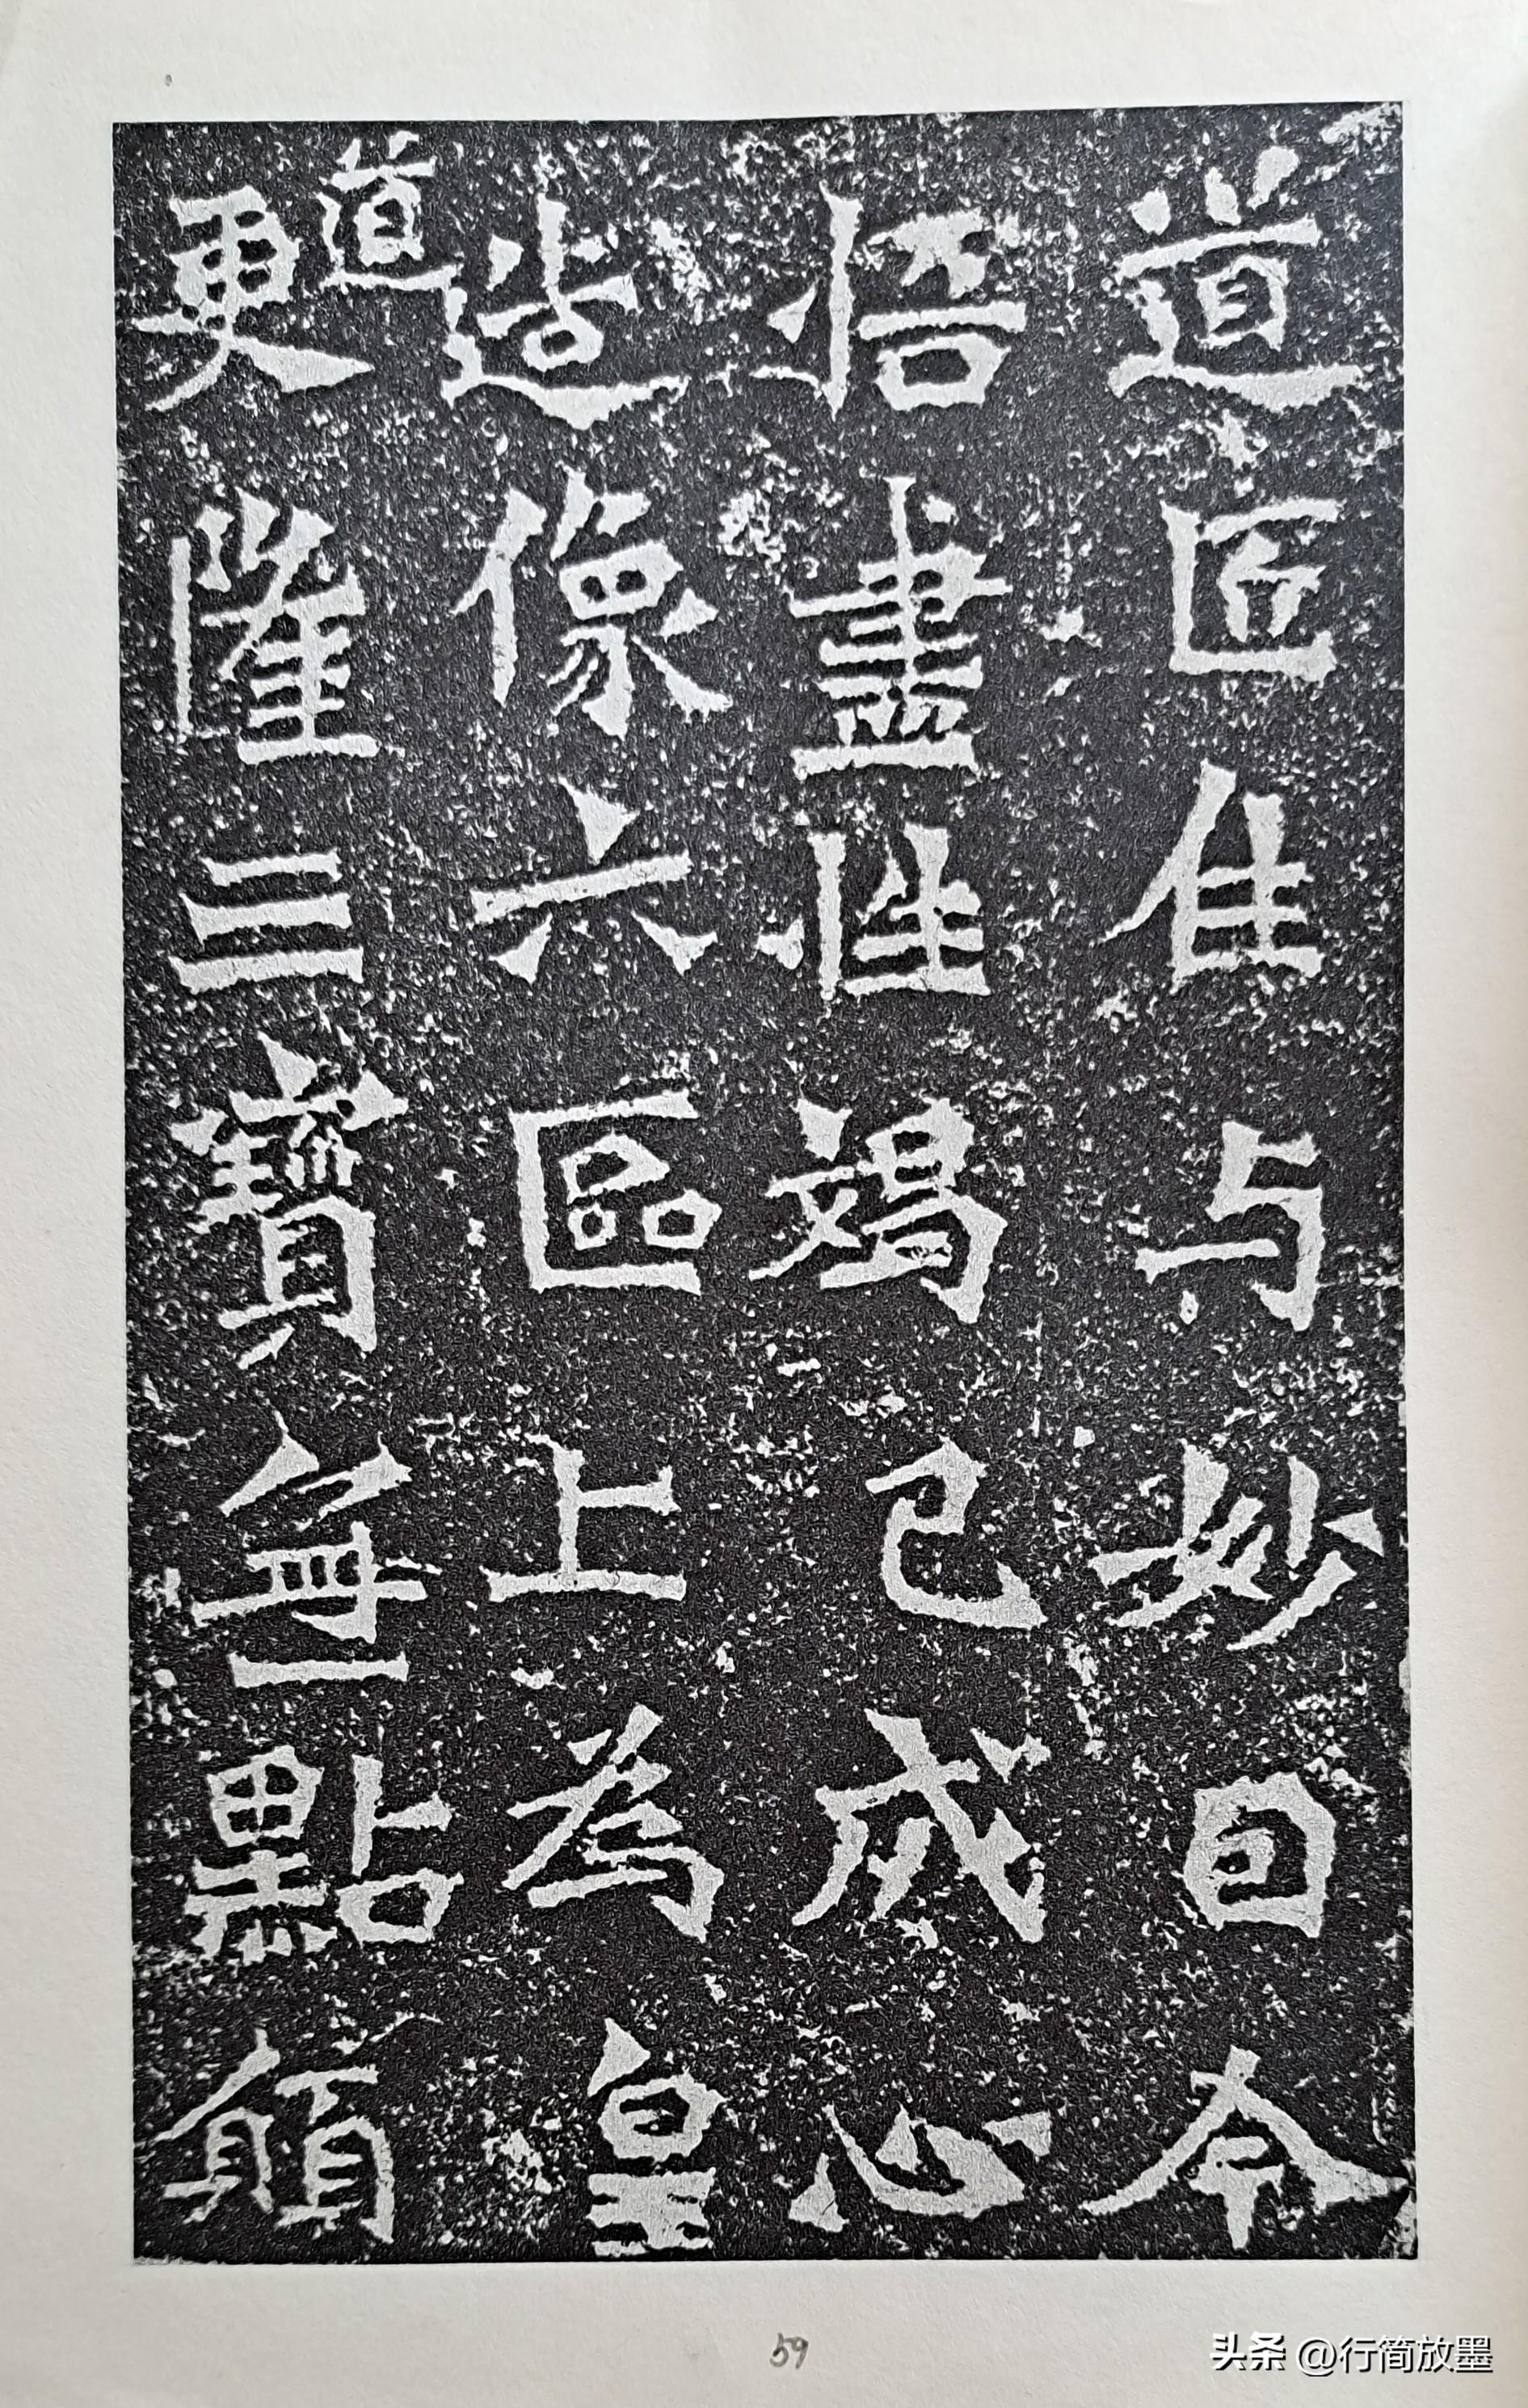 道匠与妙因今
悟盡性竭已成心
造像六區上為皇
道更隆三寶點願
59
头条 @行简放墨